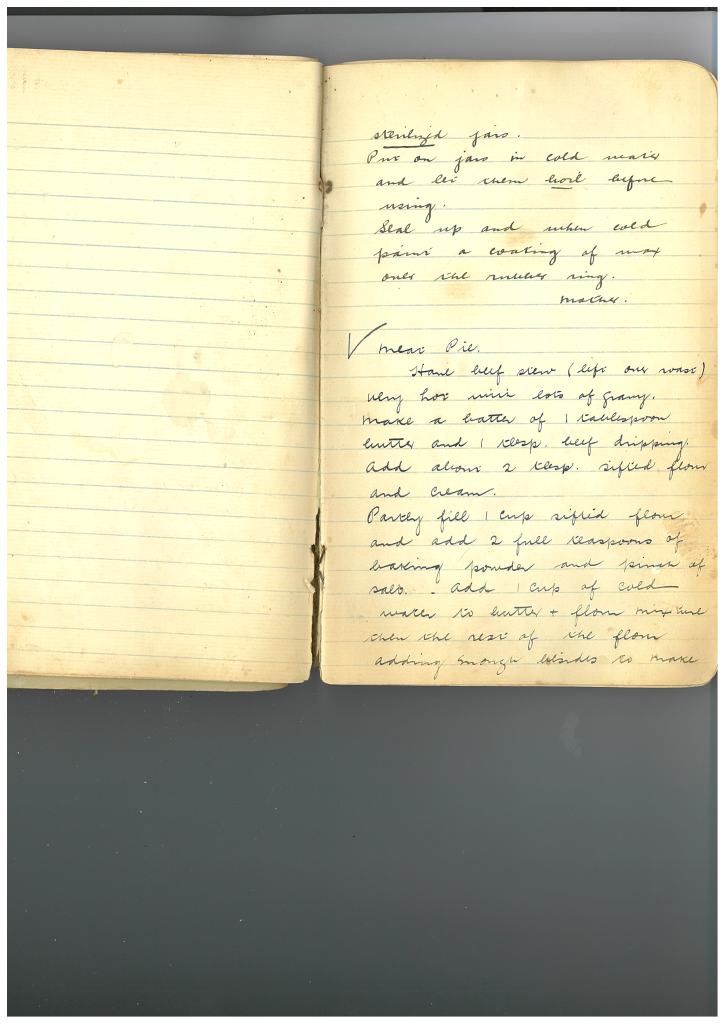 sterilized jars.
Put on jars in cold water
and let them boil before
using.
Seal up and when cold
paint a coating of wax
over the rubber ring.
Mother.
Meat Pie.
Have beef stew (left over roast)
very hot with lots of gravy.
Make a batter of 1 tablespoon
butter and 1 tbsp. beef dripping.
Add about 2 tbsp. sifted flour
and cream.
Partly fill 1 cup sifted flour
and add 2 full teaspoons of
baking powder and pinch of
salt. - Add 1 cup of cold
water to butter + flour mixture
then the rest of the flour
adding enough besides to make